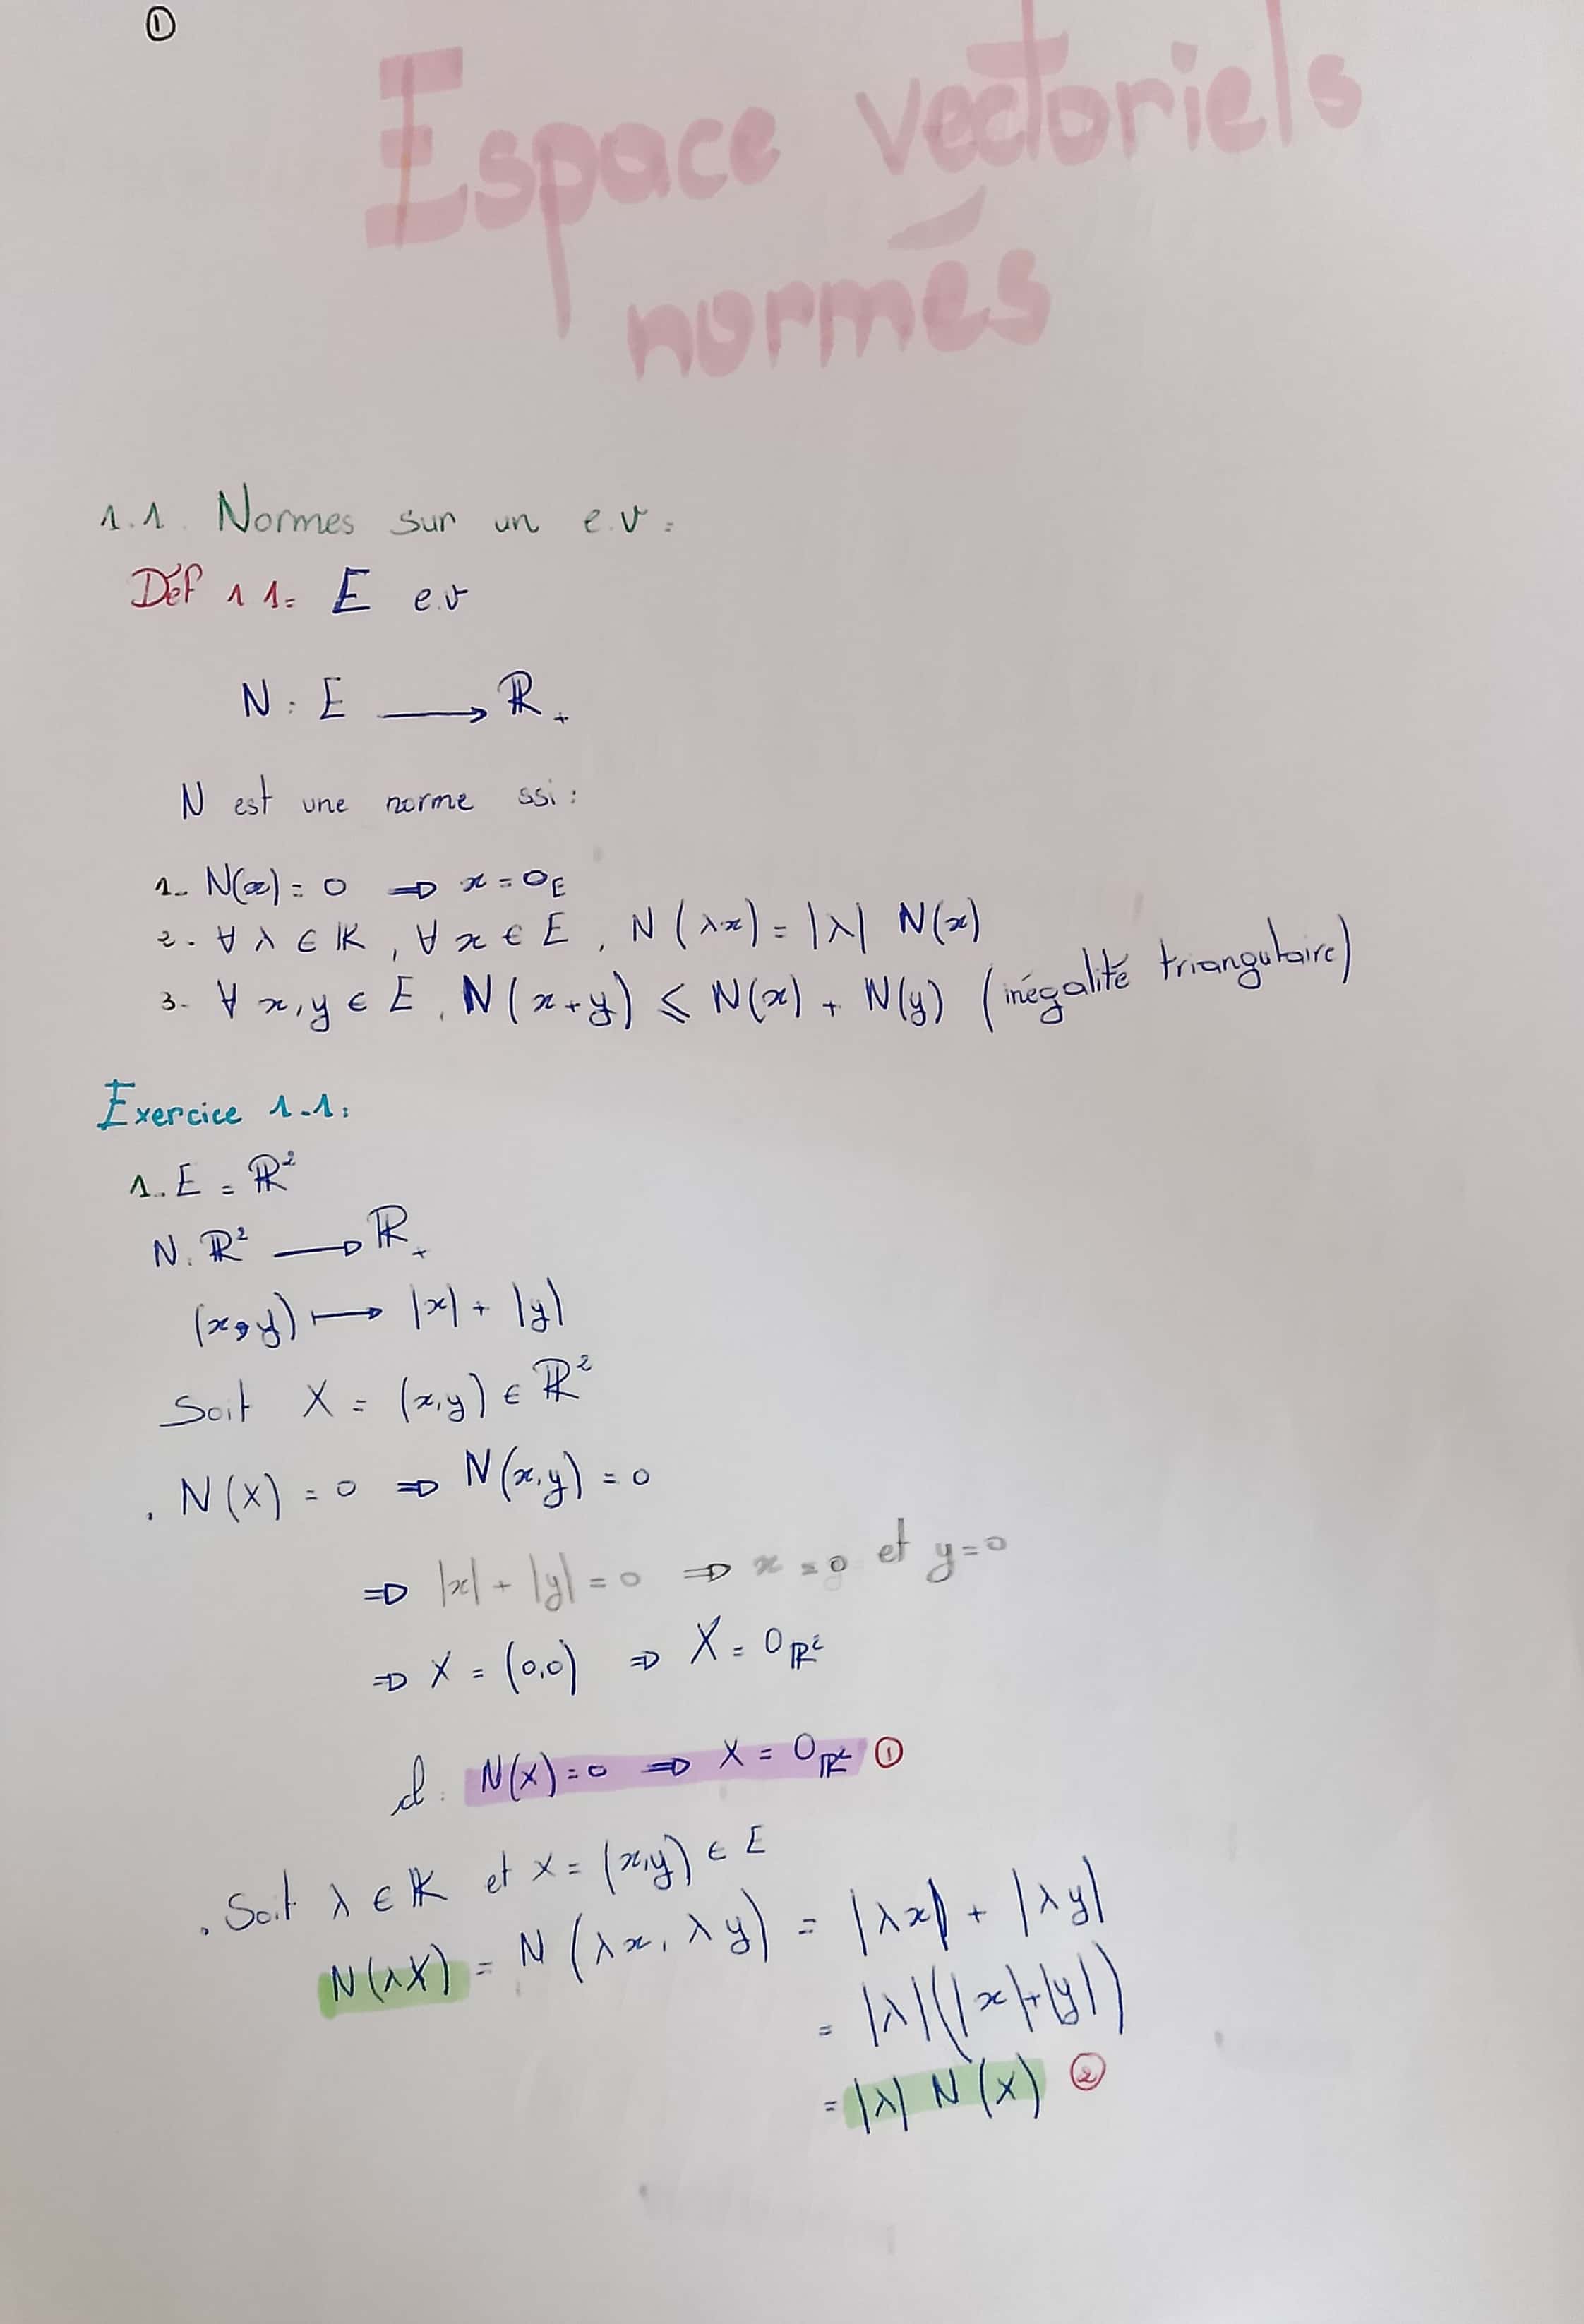 ①
Espace vectoriels
normés
1.1. Normes sur un e.v :
Déf 1.1: E e.v
N : E ⟶ ℝ₊
N est une norme ssi :
1- N(x) = 0 ⇒ x = 0_E
2- ∀ λ ∈ 𝕂, ∀ x ∈ E, N(λx) = |λ| N(x)
3- ∀ x,y ∈ E, N(x+y) ⩽ N(x) + N(y) (inégalité triangulaire)
Exercice 1-1:
1- E = ℝ²
N: ℝ² ⟶ ℝ₊
(x,y) ⟼ |x| + |y|
Soit X = (x,y) ∈ ℝ²
. N(X) = 0 ⇒ N(x,y) = 0
⇒ |x| + |y| = 0 ⇒ x = 0 et y = 0
⇒ X = (0,0) ⇒ X = 0_ℝ²
d: N(X) = 0 ⇒ X = 0_ℝ² ①
. Soit λ ∈ 𝕂 et X = (x,y) ∈ E
N(λX) = N(λx, λy) = |λx| + |λy|
= |λ|(|x|+|y|)
= |λ| N(X) ②